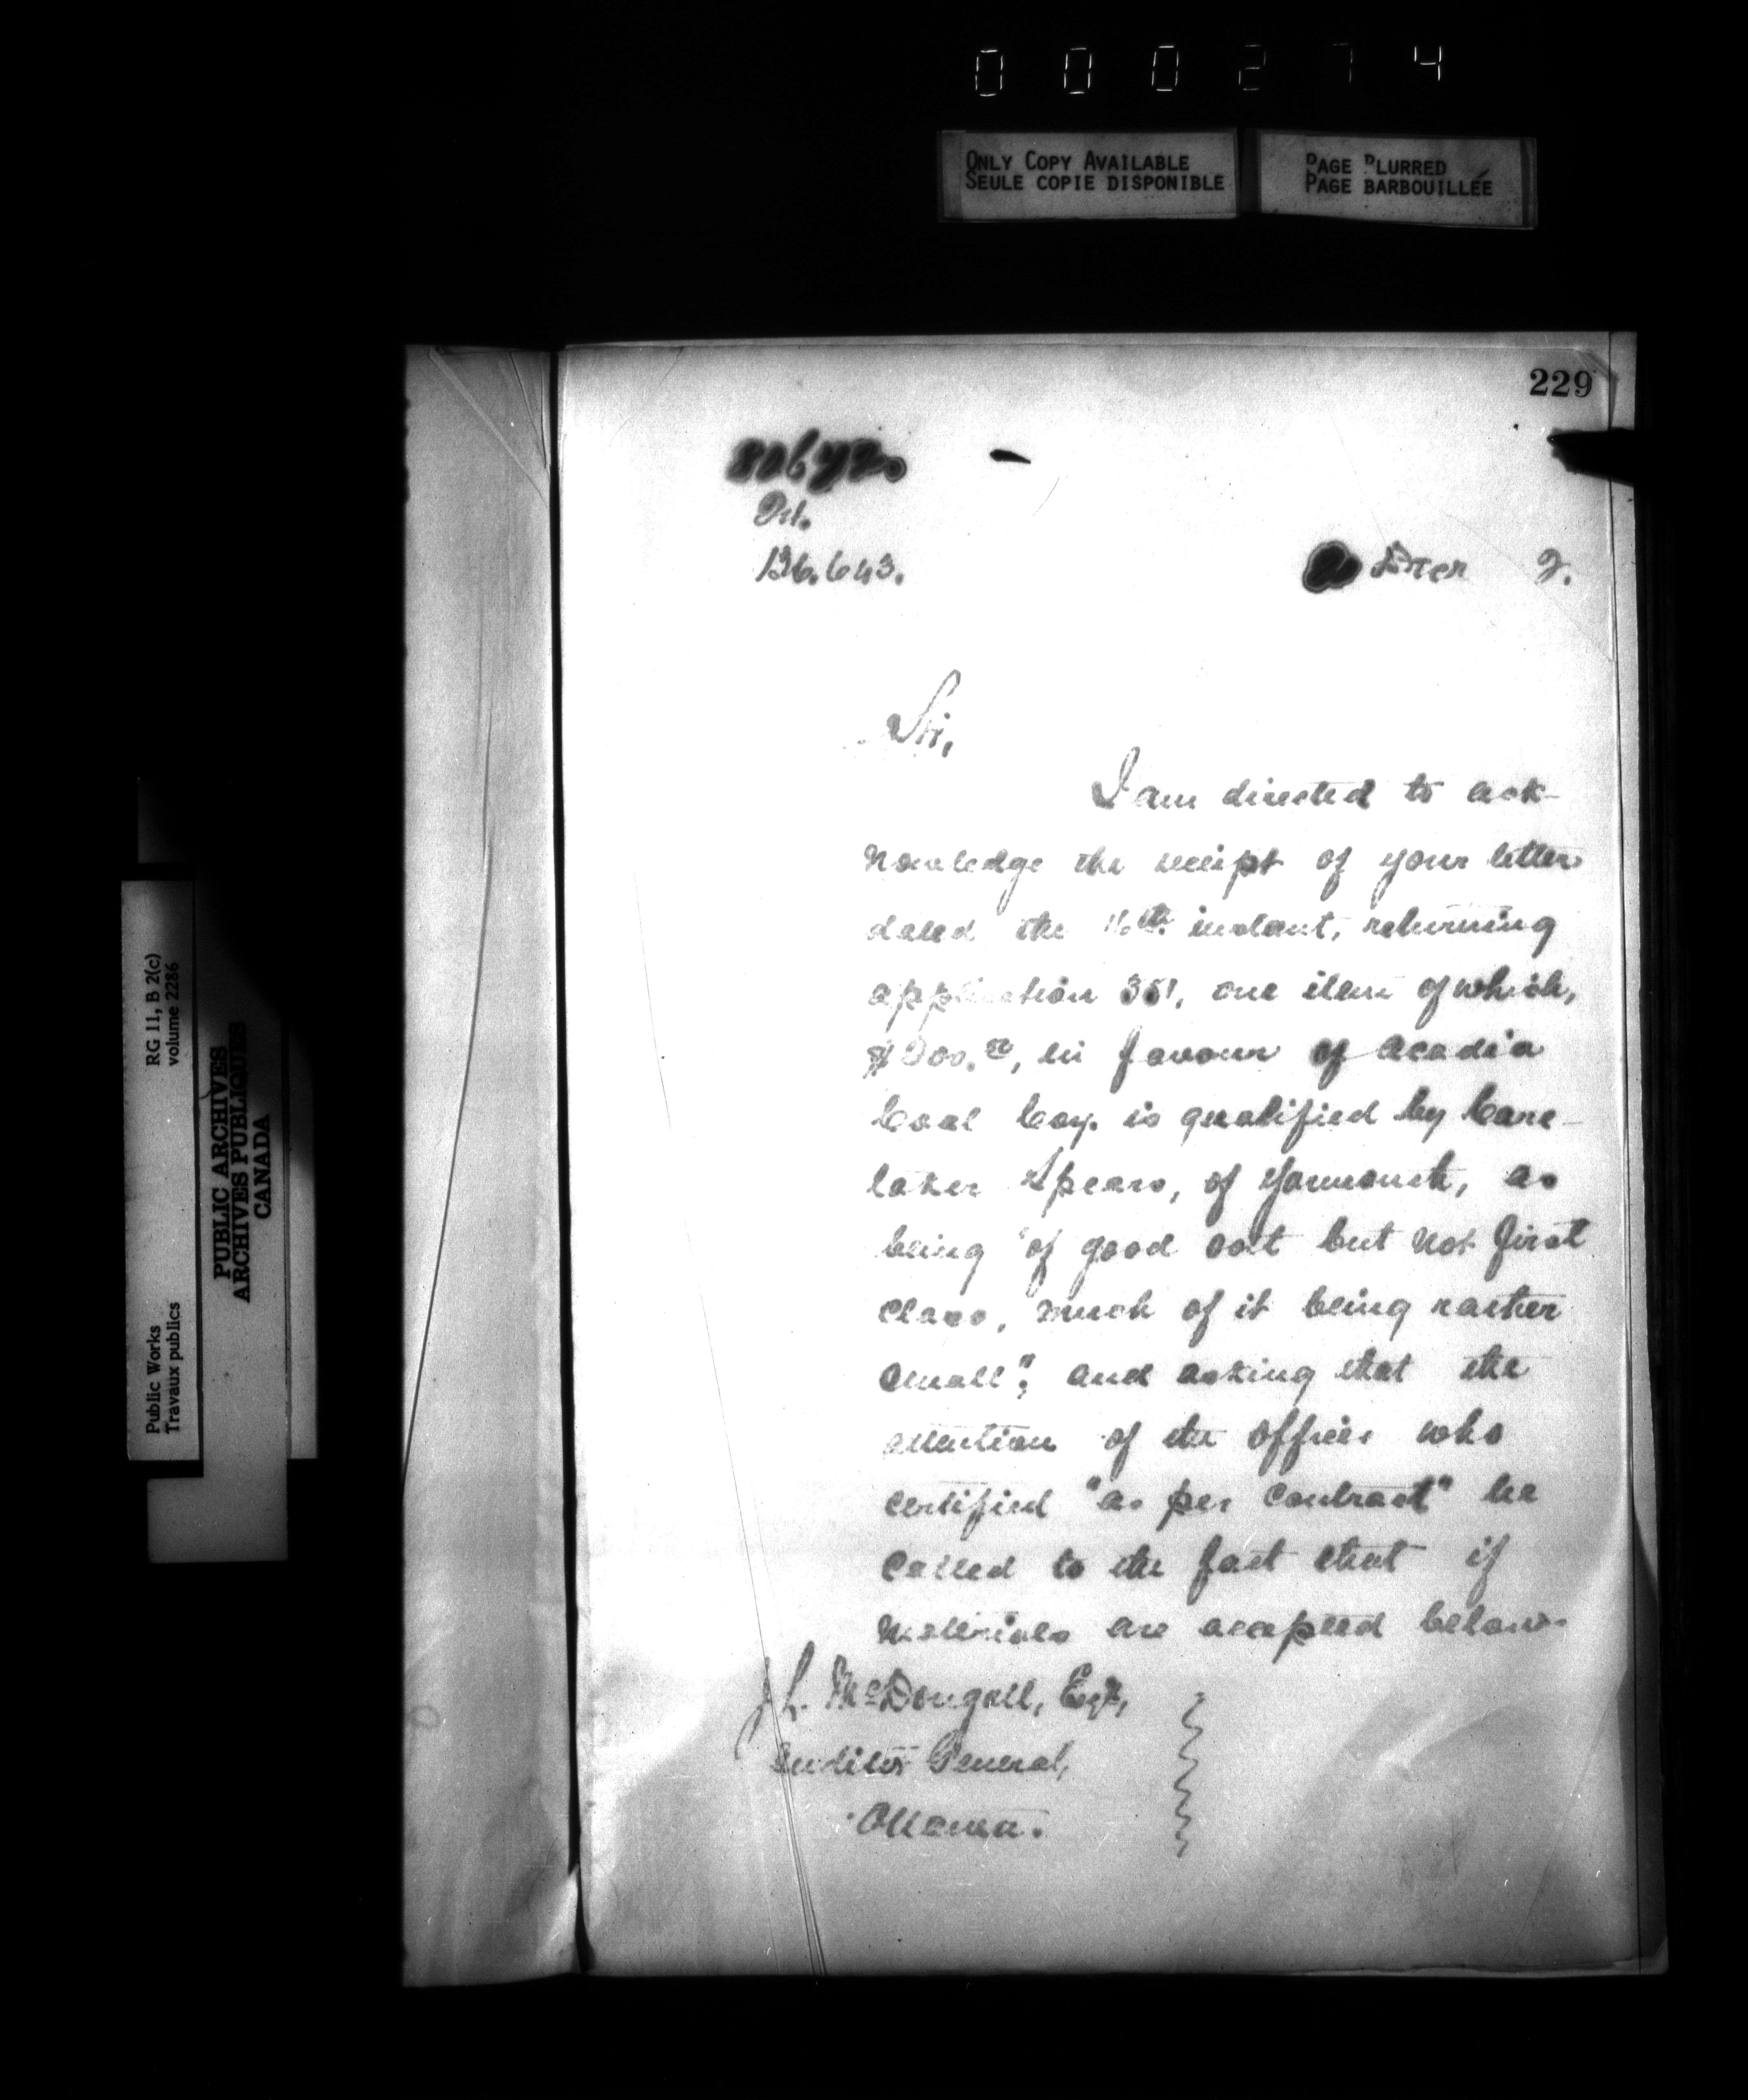 000274
ONLY COPY AVAILABLE
SEULE COPIE DISPONIBLE
PAGE BLURRED
PAGE BARBOUILLÉE
229
136.643.
2.
Sir,
I am directed to ack-
nowledge the receipt of your letter
dated the 16th. instant, returning
application 351, one item of which,
in favour of Acadia
Coal Coy. is qualified by Care-
taker Spears, of Yarmouth, as
being "of good sort but not first
class, much of it being rather
small", and asking that the
attention of the officer who
certified "as per contract" be
called to the fact that if
materials are accepted below
J L. McDougall, Esq,
Auditor General,
Ottawa.
RG 11, B 2(c)
volume 2286
Public Works
Travaux publics
PUBLIC ARCHIVES
ARCHIVES PUBLIQUES
CANADA